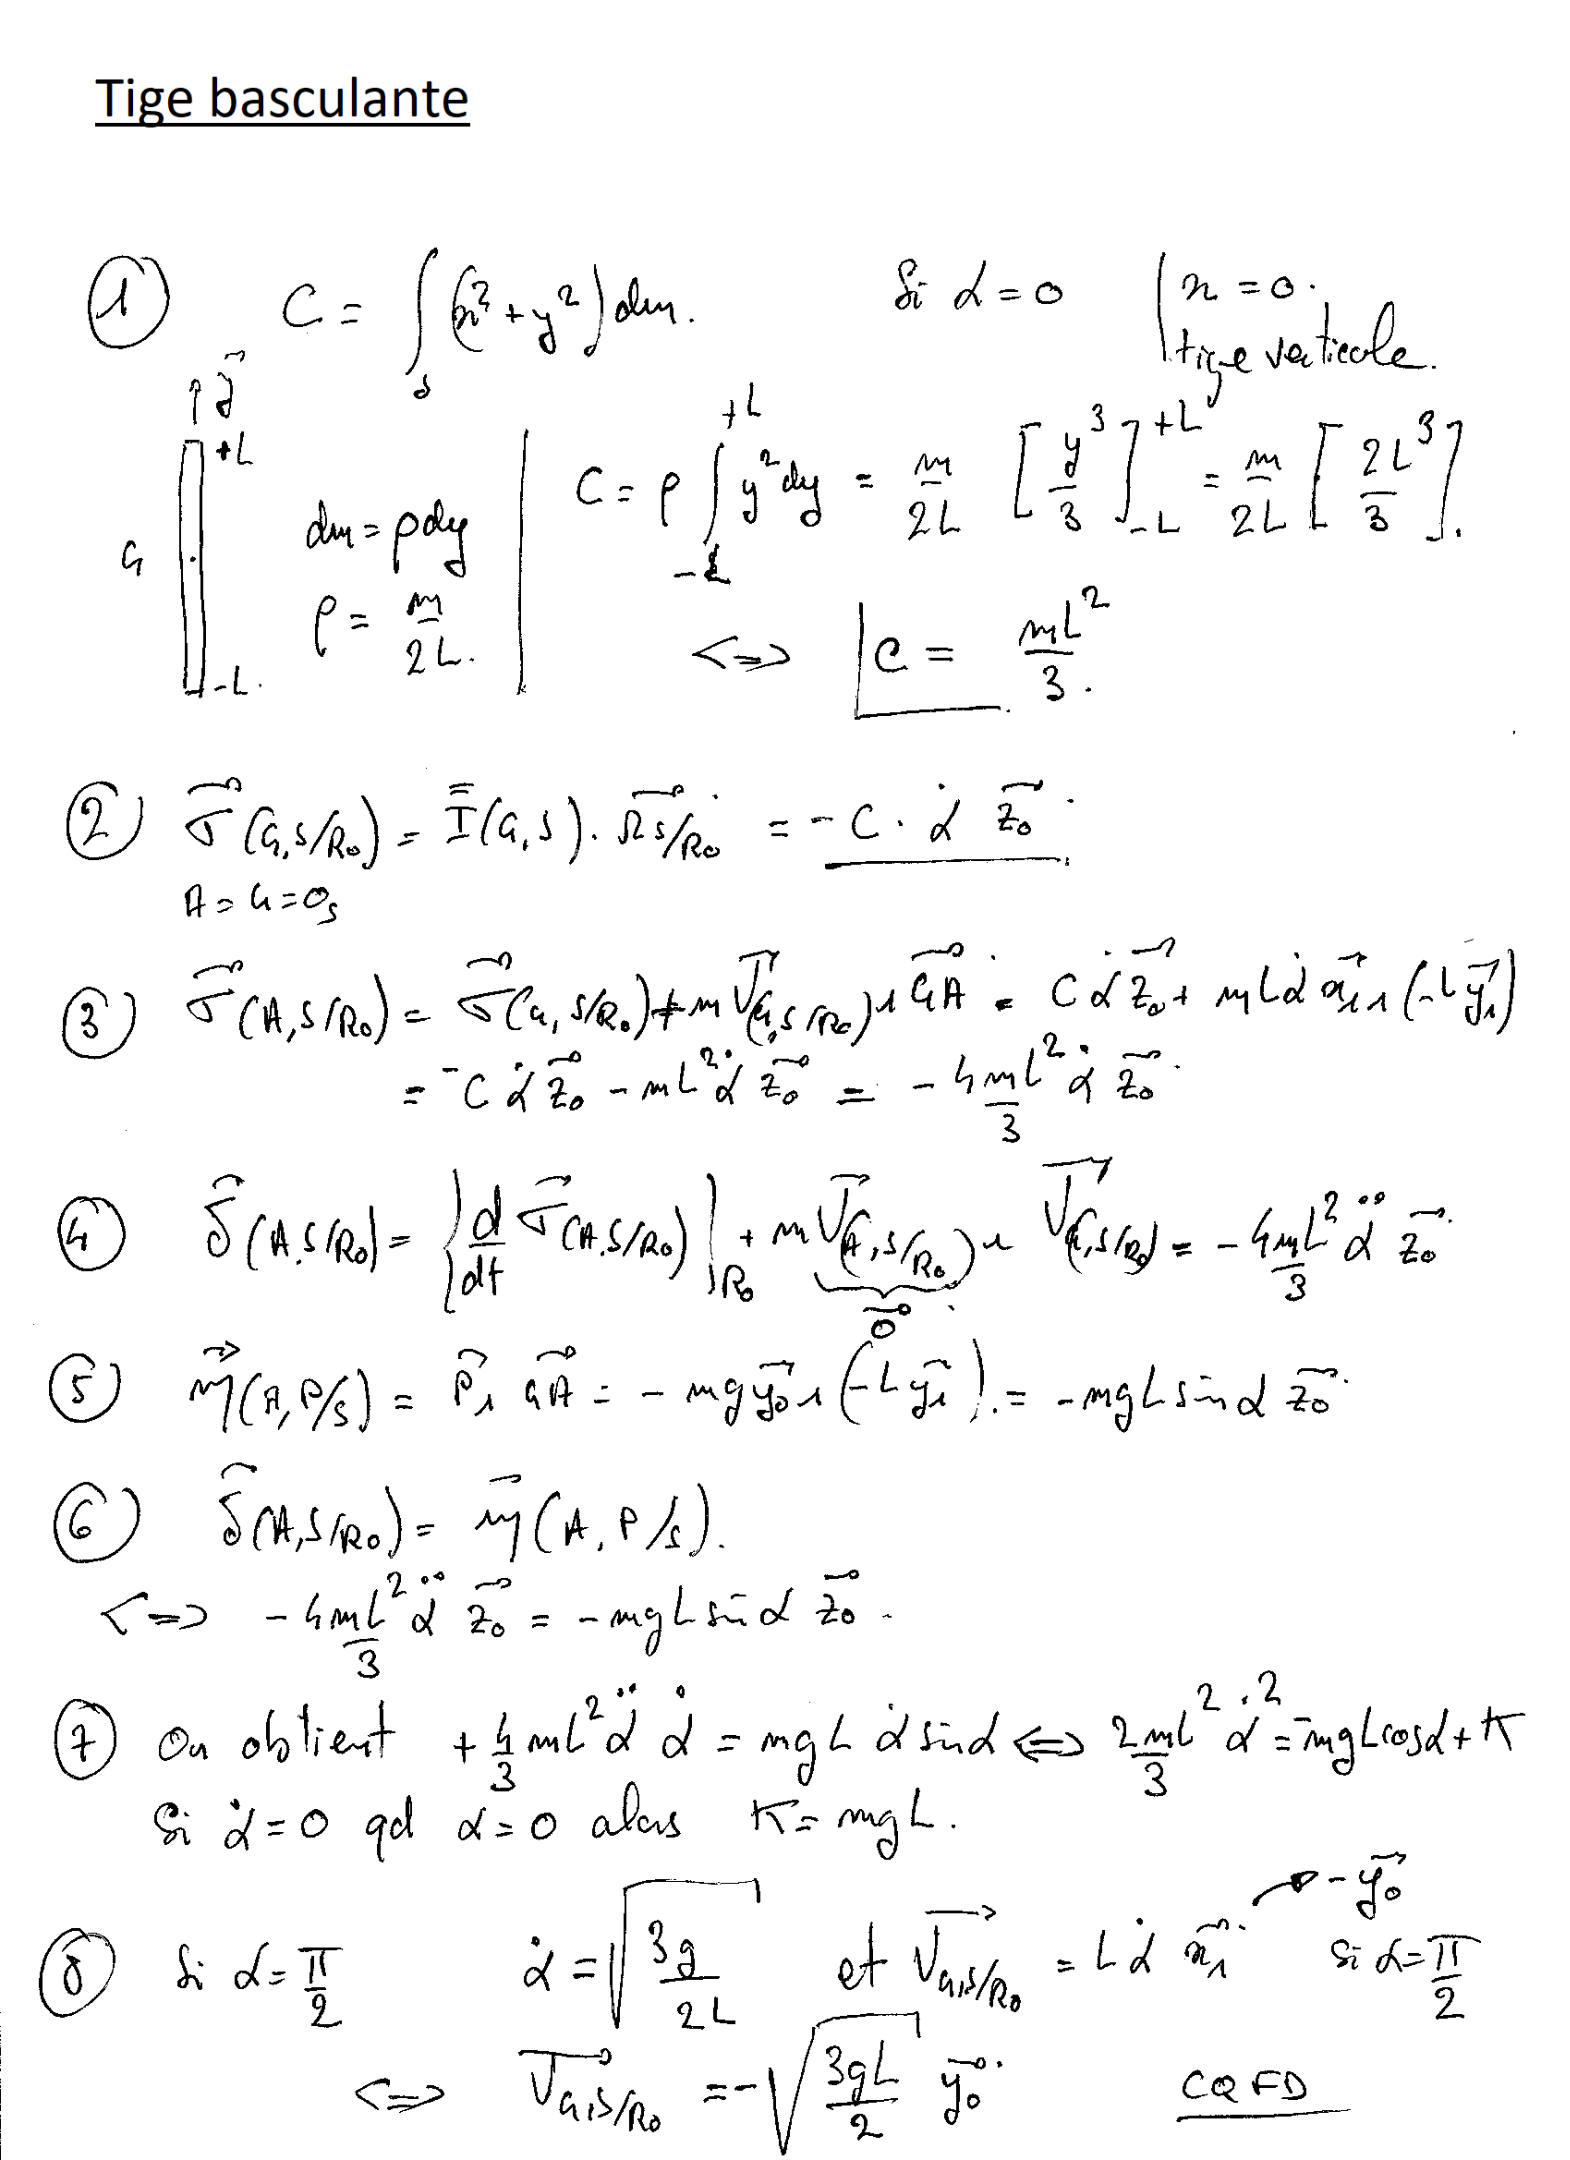 Tige basculante
① C = ∫_S (x² + y²) dm. Si α = 0 | x = 0. tige verticale.
↑ȷ⃗ +L G -L. dm = ρdy ρ = m/2L. | C = ρ ∫_{-L}^{+L} y² dy = m/2L [y³/3]_{-L}^{+L} = m/2L [2L³/3].
<=> C = mL²/3.
② σ⃗(G,S/R₀) = I̿(G,S). Ω⃗_{S/R₀} = - C. α̇ z⃗₀.
A = G = O_S
③ σ⃗(A,S/R₀) = σ⃗(G,S/R₀) + m V⃗(G,S/R₀) ∧ GA⃗ = C α̇ z⃗₀ + m L α̇ x⃗₁ ∧ (-L y⃗₁)
= - C α̇ z⃗₀ - mL² α̇ z⃗₀ = - 4mL²/3 α̇ z⃗₀
④ δ⃗(A,S/R₀) = {d/dt σ⃗(A,S/R₀)|_{R₀} + m V⃗(A,S/R₀) ∧ V⃗(G,S/R₀) = - 4mL²/3 α̈ z⃗₀
0⃗.
⑤ m⃗(A,P/S) = P⃗ ∧ GA⃗ = - mg y⃗₀ ∧ (-L y⃗₁). = - mgL sin α z⃗₀
⑥ δ⃗(A,S/R₀) = m⃗(A,P/S).
<=> - 4mL²/3 α̈ z⃗₀ = - mgL sin α z⃗₀.
⑦ On obtient + 4/3 mL² α̈ α̇ = mgL α̇ sin α <=> 2mL²/3 α̇² = -mgL cos α + K
Si α̇ = 0 qd α = 0 alors K = mgL.
⑧ Si α = π/2 α̇ = √(3g/2L) et V⃗_{G,S/R₀} = L α̇ x⃗₁ → -y⃗₀ Si α = π/2
<=> V⃗_{G,S/R₀} = -√(3gL/2) y⃗₀. CQFD